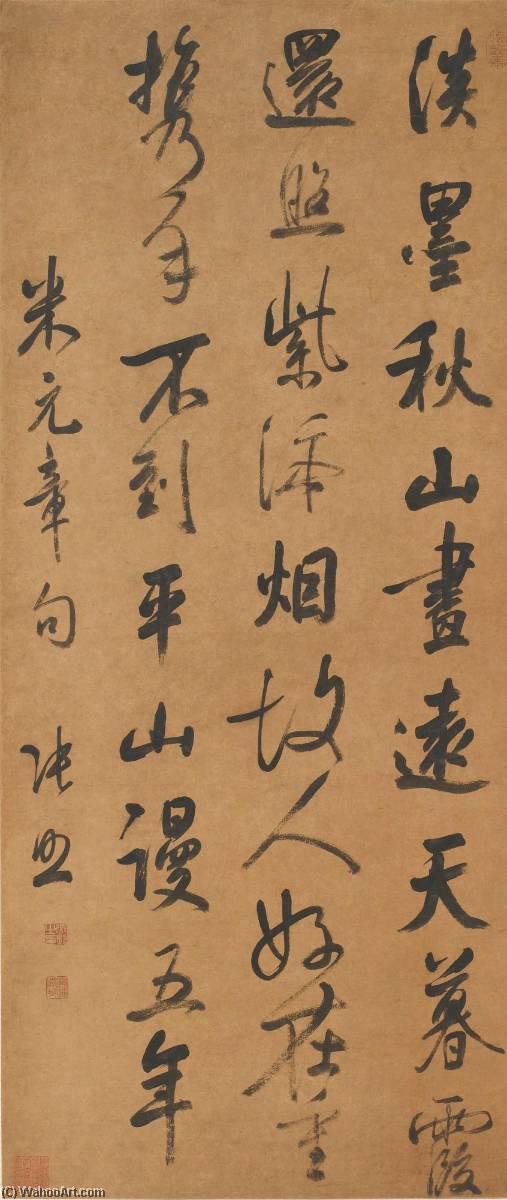 淡墨秋山畫遠天暮霞
還照紫添烟故人好在重
携手不到平山謾五年
米元章句 張照
(C) WahooArt.com